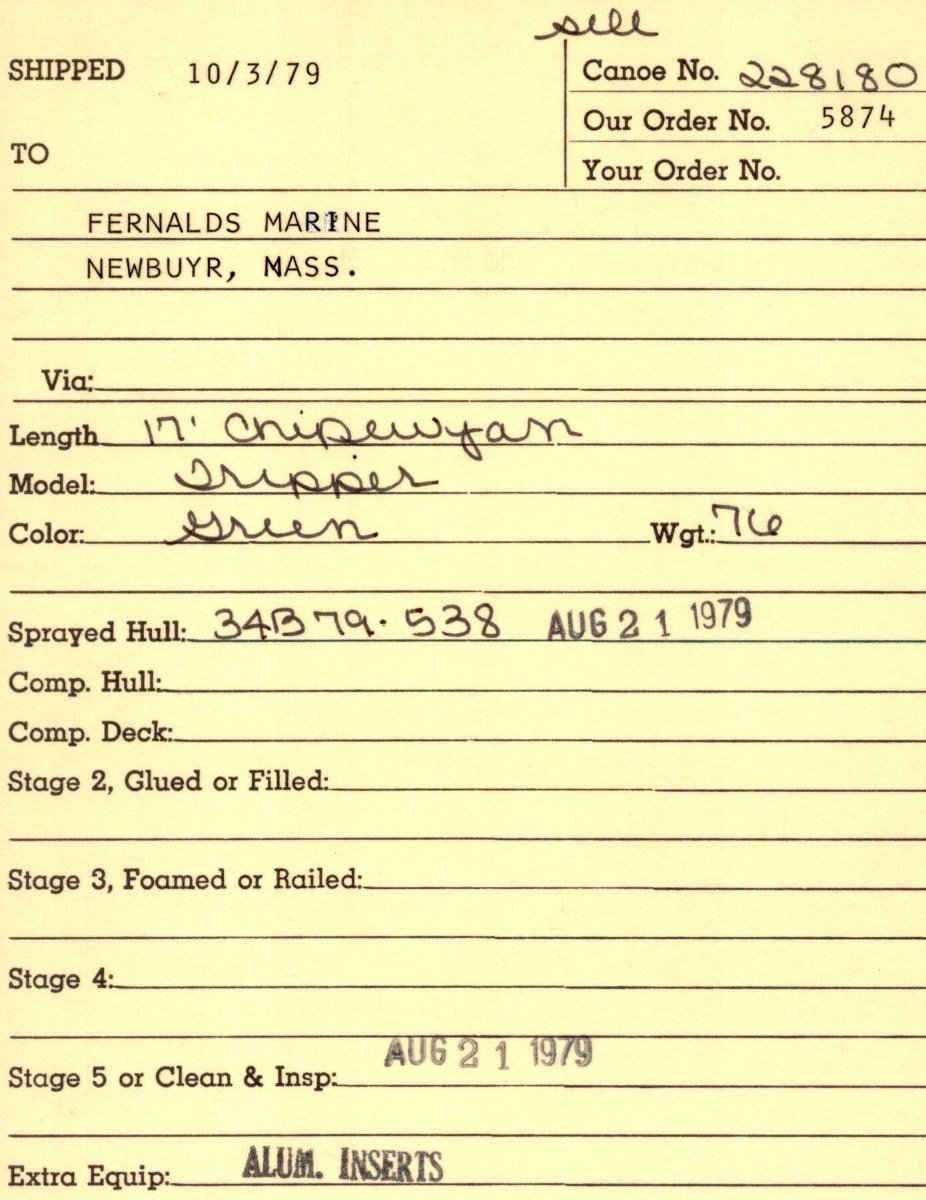 sell
SHIPPED 10/3/79
Canoe No. 228180
Our Order No. 5874
TO
Your Order No.
FERNALDS MARINE
NEWBUYR, MASS.
Via:
Length 17' Chipewyan
Model: Tripper
Color: Green Wgt.: 76
Sprayed Hull: 34B79. 538 AUG 21 1979
Comp. Hull:
Comp. Deck:
Stage 2, Glued or Filled:
Stage 3, Foamed or Railed:
Stage 4:
Stage 5 or Clean & Insp: AUG 21 1979
Extra Equip: ALUM. INSERTS